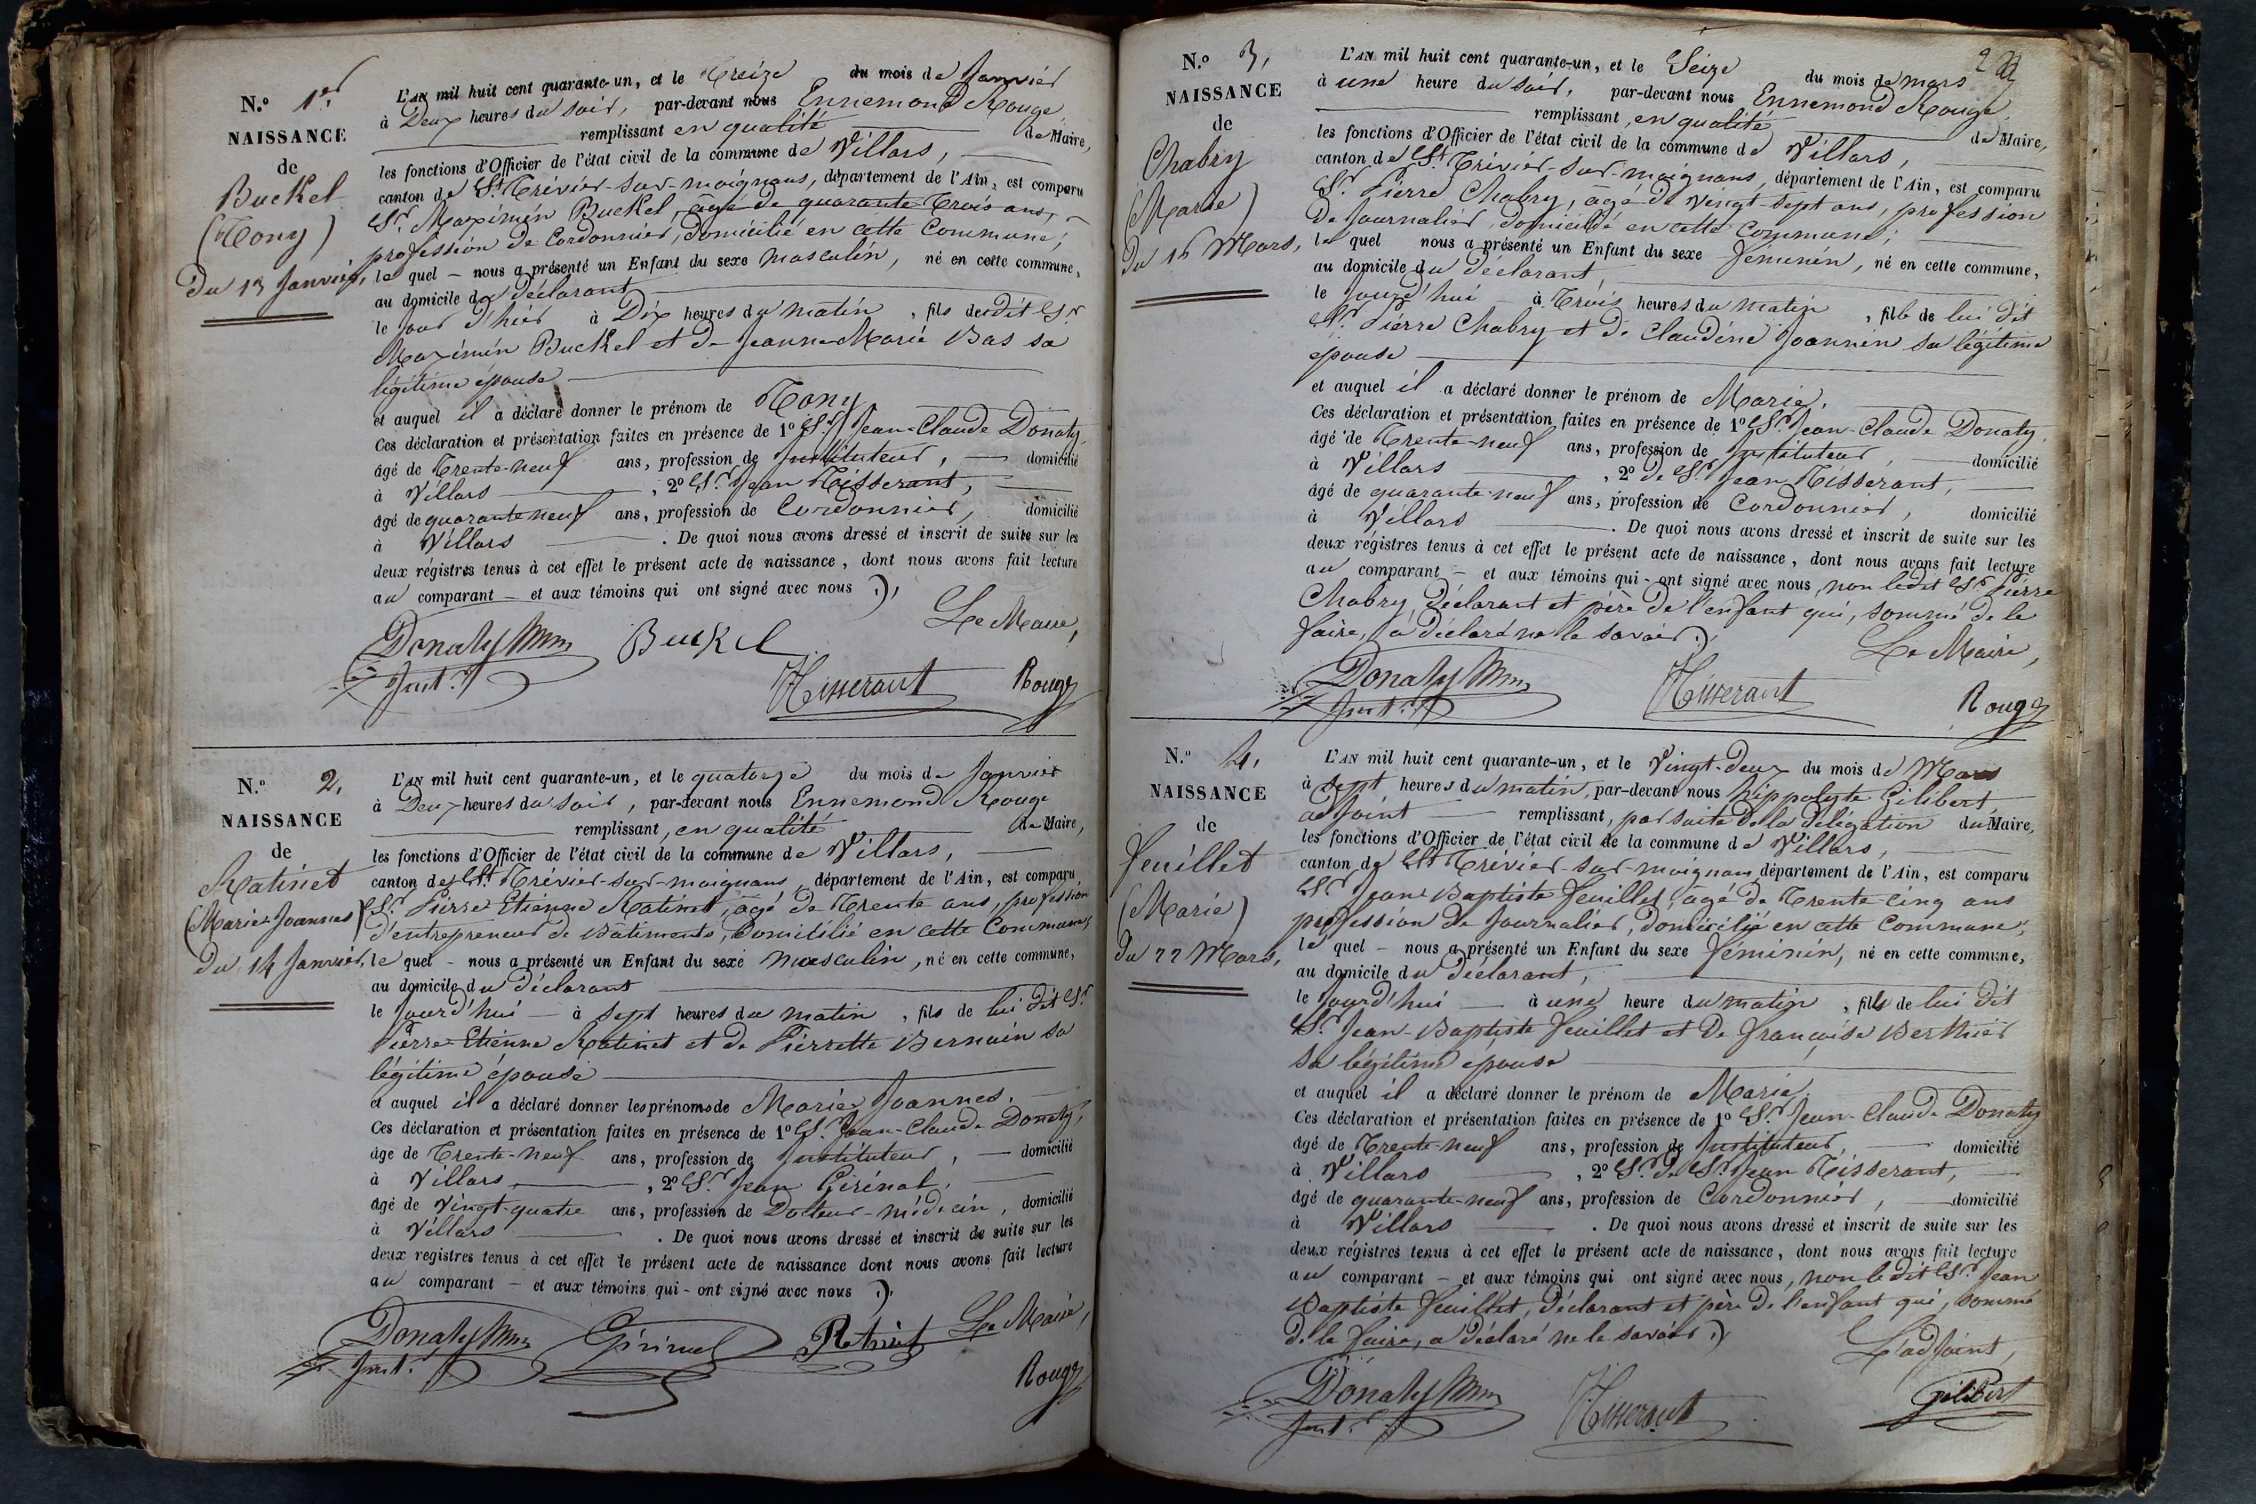 N.º 1er.
NAISSANCE
de
Buckel
(Tony)
Du 13 Janvier,
L'AN mil huit cent quarante-un, et le Treize du mois de Janvier
à Deux heures du soir, par-devant nous Ennemond Rouge,
remplissant en qualité de Maire,
les fonctions d'Officier de l'état civil de la commune de Villars,
canton de St. Trivier-sur-moignans, département de l'Ain, est comparu
Sr. Maximin Buckel, agé de quarante-Trois ans,
profession de Cordonnier, domicilié en cette Commune;
le quel – nous a présenté un Enfant du sexe masculin, né en cette commune,
au domicile du déclarant
le Jour d'hier à Dix heures du matin, fils dudit Sr.
Maximin Buckel et de Jeanne Marie Bas sa
légitime épouse
et auquel il a déclaré donner le prénom de Tony
Ces déclaration et présentation faites en présence de 1º Sr. Jean-Claude Donaty,
âgé de Trente-neuf ans, profession de Instituteur, domicilié
à Villars, 2º Sr. Jean Tisserant,
âgé de quarante-neuf ans, profession de Cordonnier, domicilié
à Villars. De quoi nous avons dressé et inscrit de suite sur les
deux régistres tenus à cet effet le présent acte de naissance, dont nous avons fait lecture
au comparant – et aux témoins qui ont signé avec nous ./.
Le Maire,
Donaty Buckel
Inst.r Tisserant Rouge
N.º 2,
NAISSANCE
de
Ratinet
(Marie Joannes)
Du 14 Janvier,
L'AN mil huit cent quarante-un, et le quatorze du mois de Janvier
à Deux heures du soir, par-devant nous Ennemond Rouge
remplissant, en qualité de Maire,
les fonctions d'Officier de l'état civil de la commune de Villars,
canton de St. Trivier-sur-moignans, département de l'Ain, est comparu
Sr. Pierre Etienne Ratinet, âgé de Trente ans, profession
d'entrepreneur de Bâtiments, Domicilié en cette Commune,
le quel – nous a présenté un Enfant du sexe masculin, né en cette commune,
au domicile du déclarant
le Jourd'hui – à sept heures du matin, fils de lui dit Sr.
Pierre Etienne Ratinet et de Pierrette Bernain sa
légitime épouse
et auquel il a déclaré donner les prénoms de Marie Joannes.
Ces déclaration et présentation faites en présence de 1º Sr. Jean-Claude Donaty,
âgé de Trente-neuf ans, profession de Instituteur, domicilié
à Villars, 2º Sr. Jean Girinal,
âgé de vingt-quatre ans, profession de Docteur-médecin, domicilié
à Villars. De quoi nous avons dressé et inscrit de suite sur les
deux registres tenus à cet effet le présent acte de naissance dont nous avons fait lecture
au comparant – et aux témoins qui – ont signé avec nous ./.
Donaty Ratinet Le Maire,
Inst.r Rouge
N.º 3,
NAISSANCE
de
Chabry
(Marie)
Du 16 Mars,
L'AN mil huit cent quarante-un, et le Seize du mois de mars
à une heure du soir, par-devant nous Ennemond Rouge,
remplissant, en qualité de Maire,
les fonctions d'Officier de l'état civil de la commune de Villars,
canton de St. Trivier-sur-moignans, département de l'Ain, est comparu
Sr. Pierre Chabry, âgé de vingt-sept ans, profession
de Journalier, domicilié en cette commune;
le quel nous a présenté un Enfant du sexe féminin, né en cette commune,
au domicile du déclarant
le Jourd'hui à Trois heures du matin, fille de lui dit
Sr. Pierre Chabry et de Claudine Joannin sa légitime
épouse
et auquel il a déclaré donner le prénom de Marie.
Ces déclaration et présentation faites en présence de 1º Sr. Jean-Claude Donaty,
âgé de Trente-neuf ans, profession de Instituteur, domicilié
à Villars, 2º de Sr. Jean Tisserant,
âgé de quarante-neuf ans, profession de Cordonnier, domicilié
à Villars. De quoi nous avons dressé et inscrit de suite sur les
deux régistres tenus à cet effet le présent acte de naissance, dont nous avons fait lecture
au comparant – et aux témoins qui – ont signé avec nous, non ledit Sr. Pierre
Chabry, Déclarant et père de l'enfant qui, sommé de le
faire, a déclaré ne le savoir ./.
Le Maire,
Donaty Tisserant
Inst.r Rouge
N.º 4,
NAISSANCE
de
Feuillet
(Marie)
Du 22 Mars,
L'AN mil huit cent quarante-un, et le Vingt-Deux du mois de Mars
à sept heures du matin, par-devant nous hippolyte Gilibert
adjoint remplissant, par suite de la délégation du Maire,
les fonctions d'Officier de l'état civil de la commune de Villars,
canton de St. Trivier-sur-moignans, département de l'Ain, est comparu
Sr. Jean Baptiste Feuillet, âgé de Trente cinq ans
profession de Journalier, domicilié en cette commune,
le quel – nous a présenté un Enfant du sexe féminin, né en cette commune,
au domicile du déclarant,
le Jourd'hui à une heure du matin, fille de lui dit
Sr. Jean-Baptiste Feuillet et de Françoise Berthier
sa légitime épouse
et auquel il a déclaré donner le prénom de Marie.
Ces déclaration et présentation faites en présence de 1º Sr. Jean-Claude Donaty
âgé de Trente-neuf ans, profession de Instituteur domicilié
à Villars, 2º Sr. de Sr. Jean Tisserant,
âgé de quarante-neuf ans, profession de Cordonnier, domicilié
à Villars. De quoi nous avons dressé et inscrit de suite sur les
deux régistres tenus à cet effet le présent acte de naissance, dont nous avons fait lecture
au comparant – et aux témoins qui ont signé avec nous, non le dit Sr. Jean
Baptiste Feuillet, Déclarant et père de l'enfant qui, sommé
de le faire, a déclaré ne le savoir ./.
L'adjoint,
Donaty Tisserant Gilibert
Inst.r